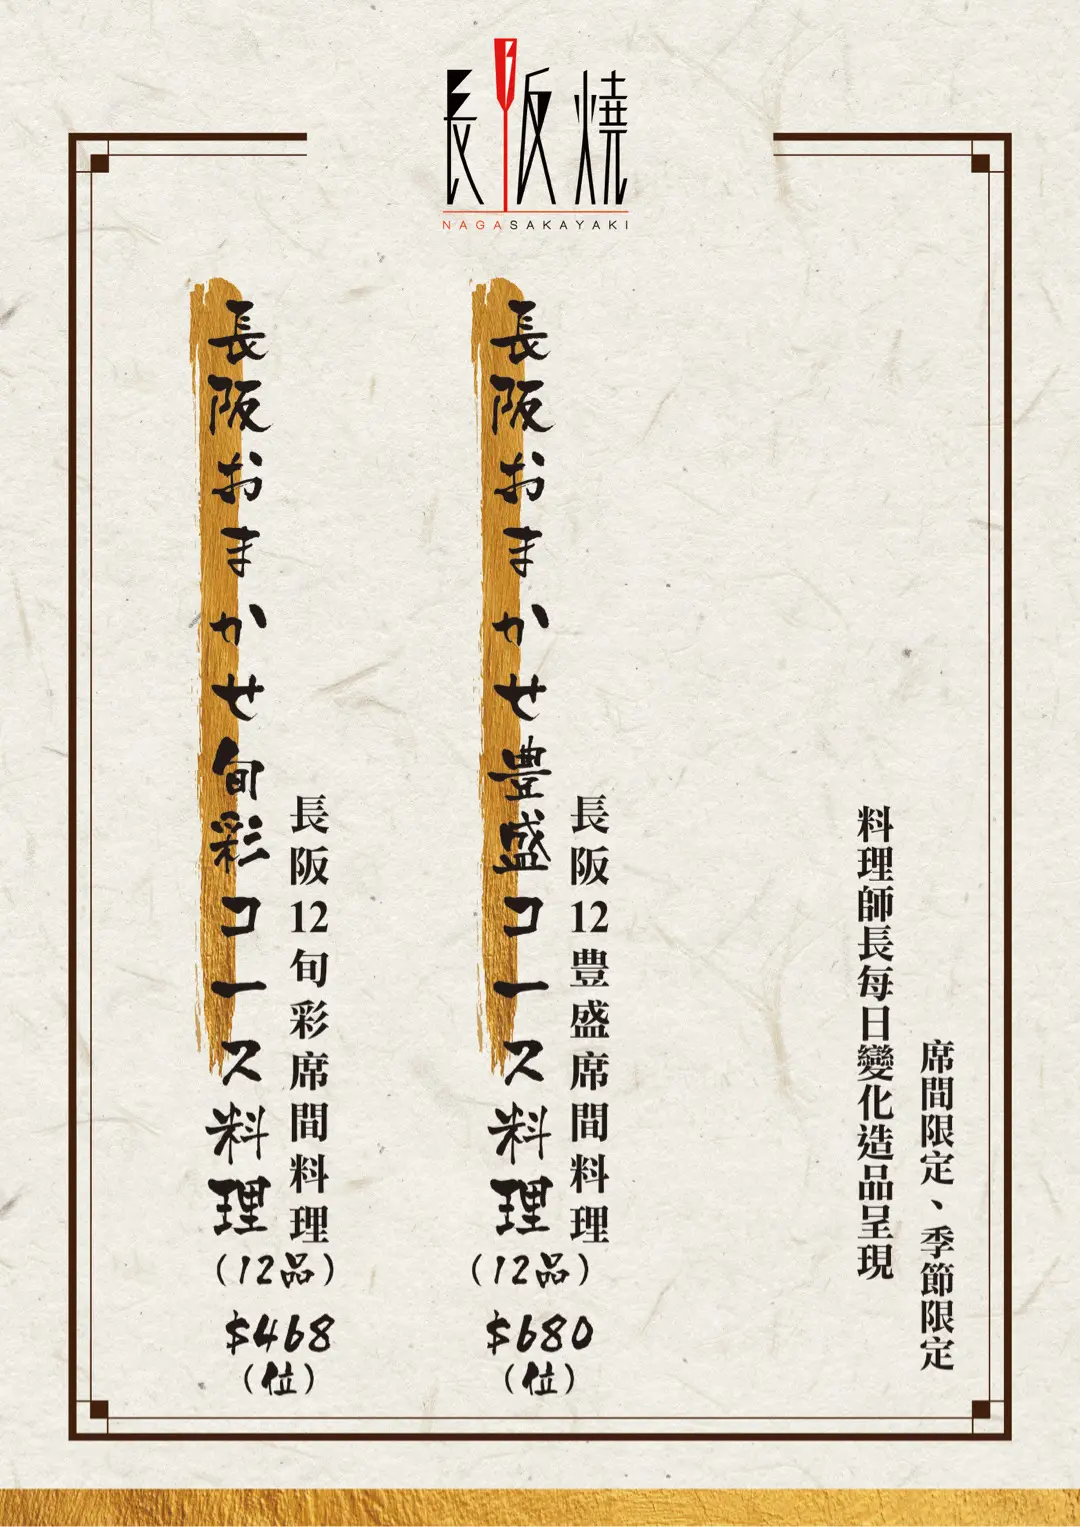 長阪燒
NAGASAKAYAKI
席間限定、季節限定
料理師長每日變化造品呈現
長阪おまかせ豊盛コース料理
長阪12豊盛席間料理
(12品)
$680
(位)
長阪おまかせ旬彩コース料理
長阪12旬彩席間料理
(12品)
$468
(位)